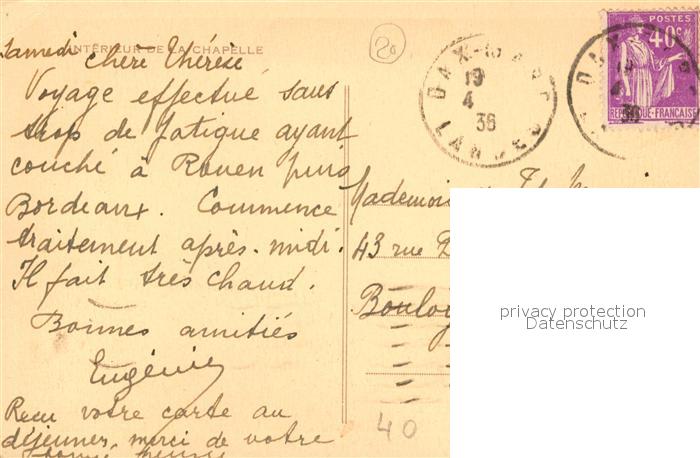 INTÉRIEUR DE LA CHAPELLE
Samedi chère Thérèse
Voyage effectué sans
trop de fatigue ayant
couché à Rouen puis
Bordeaux. Commence
traitement après-midi.
Il fait très chaud.
Bonnes amitiés
Eugénie
Reçu votre carte au
déjeuner, merci de votre
20
DAX
19
4
36
LANDES
POSTES
40c
REPUBLIQUE-FRANÇAISE
DAX
43 rue
privacy protection
Datenschutz
40